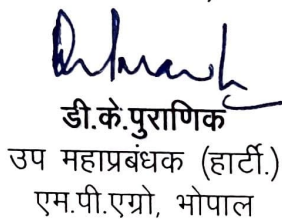 डी.के.पुराणिक
उप महाप्रबंधक (हार्टी.)
एम.पी.एग्रो, भोपाल